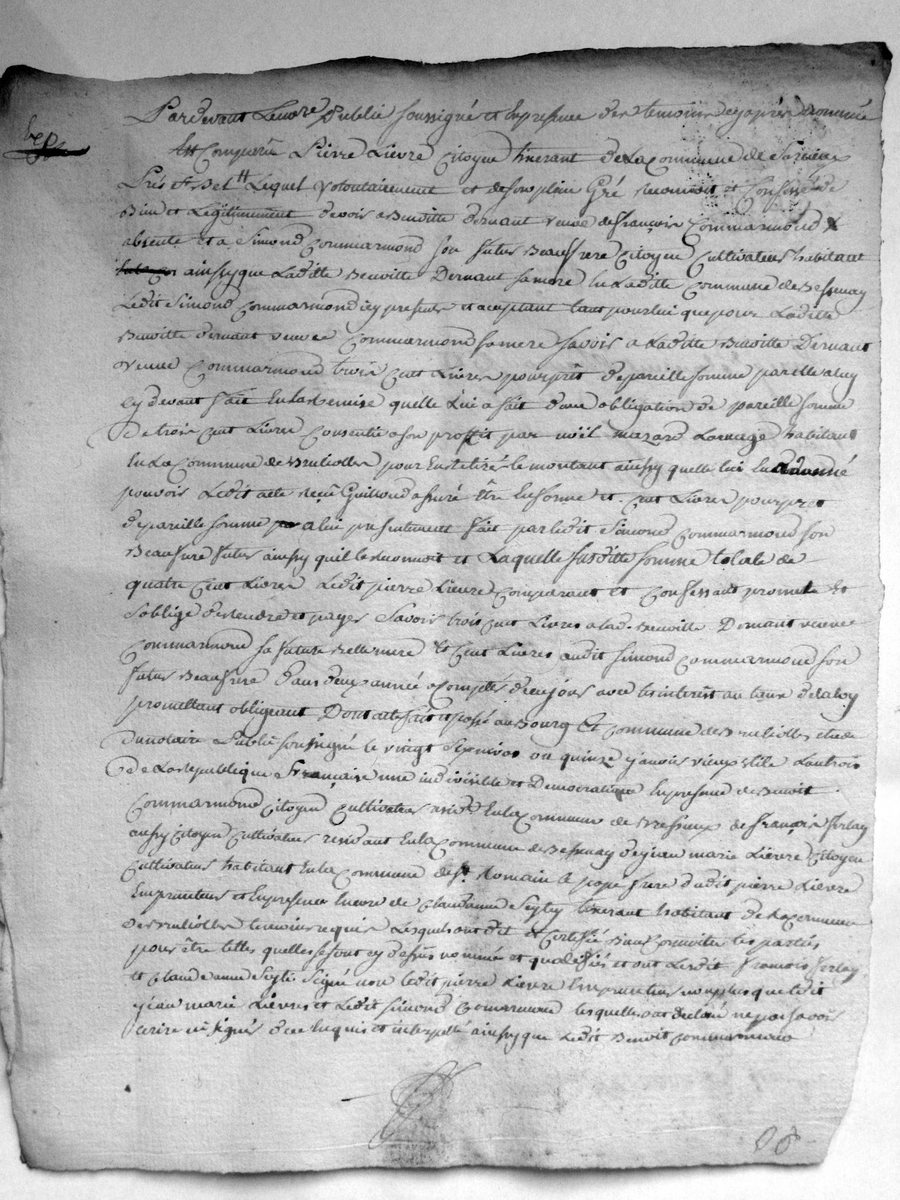 Pardevant Lenore Publié soussigné et Enpresence des temoins cy après nommé
Est Comparûe Pierre Lievre Citoyen tixerant de La Commune de
Prés Lequel volontairement et de son plein Gré reconnoit et Confesse de
Bien et Legitimement devoir a Benoitte Dernant veuve de françois Commarmond
absente et a Simond Commarmond son futur Beaufrere Citoyen Cultivateur habitant
ainsy que Laditte Benoitte Dernant sa mere en Laditte Commune de Bessenay
Ledit Simond Commarmond icy present et aceptant tant pour lui que pour Laditte
Benoitte dernant veuve Commarmond sa mere savoir a Laditte Benoitte Dernant
veuve Commarmond trois Cent Livres pour prêt de pareille somme par elle a luy
cy devant fait En La Remise quelle Lui a fait d'une obligation de pareille somme
De trois Cent Livres Consentie a son proffit par noël mazard habitant
En La Commune de Brulliolles pour En retiré le montant ainsy quelle lui En a donné
pouvoir Ledit acte reçu Guilloud assuré Être En forme et Cent Livres pour prêt
de pareille somme a lui presentement fait par ledit Simond Commarmond son
Beaufrere futur ainsy quil le reconnoit et Laquelle susditte somme totale de
quatre Cent Livres Ledit pierre Lievre Comparant et Confessant promet et
s'oblige de rendre et payer Savoir trois Cent Livres a lad. Benoitte Dernant veuve
Commarmond sa future Bellemere et Cent Livres audit Simond Commarmond son
futur Beaufrere Dans deux année a Compter de ce jour avec Linterest au taux de la loy
promettant obligeant Dont acte fait et passé au Bourg et Commune de Brulliolles etude
du notaire Publié soussigné le vingt six nivos ou quinze janvier vieux stile Lan trois
De La Republique Française une indivisible et Democratique En presence de Benoit
Commarmond Citoyen Cultivateur resid.t En La Commune de de françois ferlay
aussy Citoyen Cultivateur residant En La Commune de Bessenay de jean marie Lievre Citoyen
Cultivateur habitant En La Commune de St. Romain de popé frere dudit pierre Lievre
Emprunteur et En presence Encore de Claudanne Seyty tixerant habitant de La Commune
de Brulliolles temoins requis Lesquels ont dit et Certifié Bien Connoitre Les parties
pour être telles quelles se sont cy dessus nommée et qualifiés et ont Ledit françois ferlay
et Claudeanne Seyti Signé non Ledit pierre Lievre Emprunteur non plus que Ledit
jean marie Lievre et Ledit Simond Commarmond Lesquelles ont declaré ne pas savoir
Ecrire ni signer de ce Enquis et interpellé ainsy que Ledit Benoit Commarmond